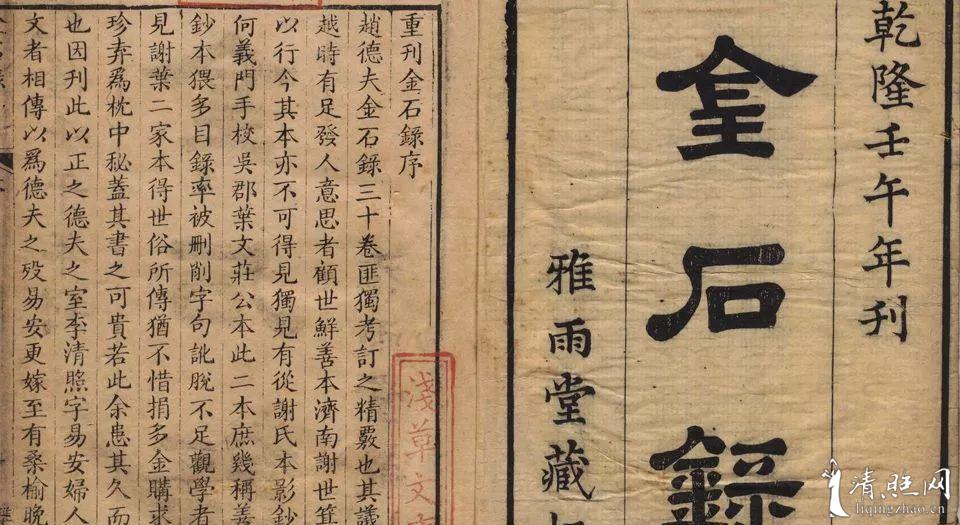 乾隆壬午年刊
金石錄
雅雨堂藏
重刊金石錄序
趙德夫金石錄三十卷匪獨考訂之精覈也其議
越時有足發人意思者顧世鮮善本濟南謝世箕
以行今其本亦不可得見獨見有從謝氏本影鈔
何義門手校吳郡葉文莊公本此二本庶幾稱善
鈔本猥多目錄率被刪削字句訛脫不足觀學者
見謝葉二家本得世俗所傳猶不惜捐多金購求
珍弆爲枕中秘蓋其書之可貴若此余患其久而
也因刊此以正之德夫之室李清照字易安婦人
文者相傳以爲德夫之歿易安更嫁至有桑榆晚
淺草文
清照网
liqingzhao.cn